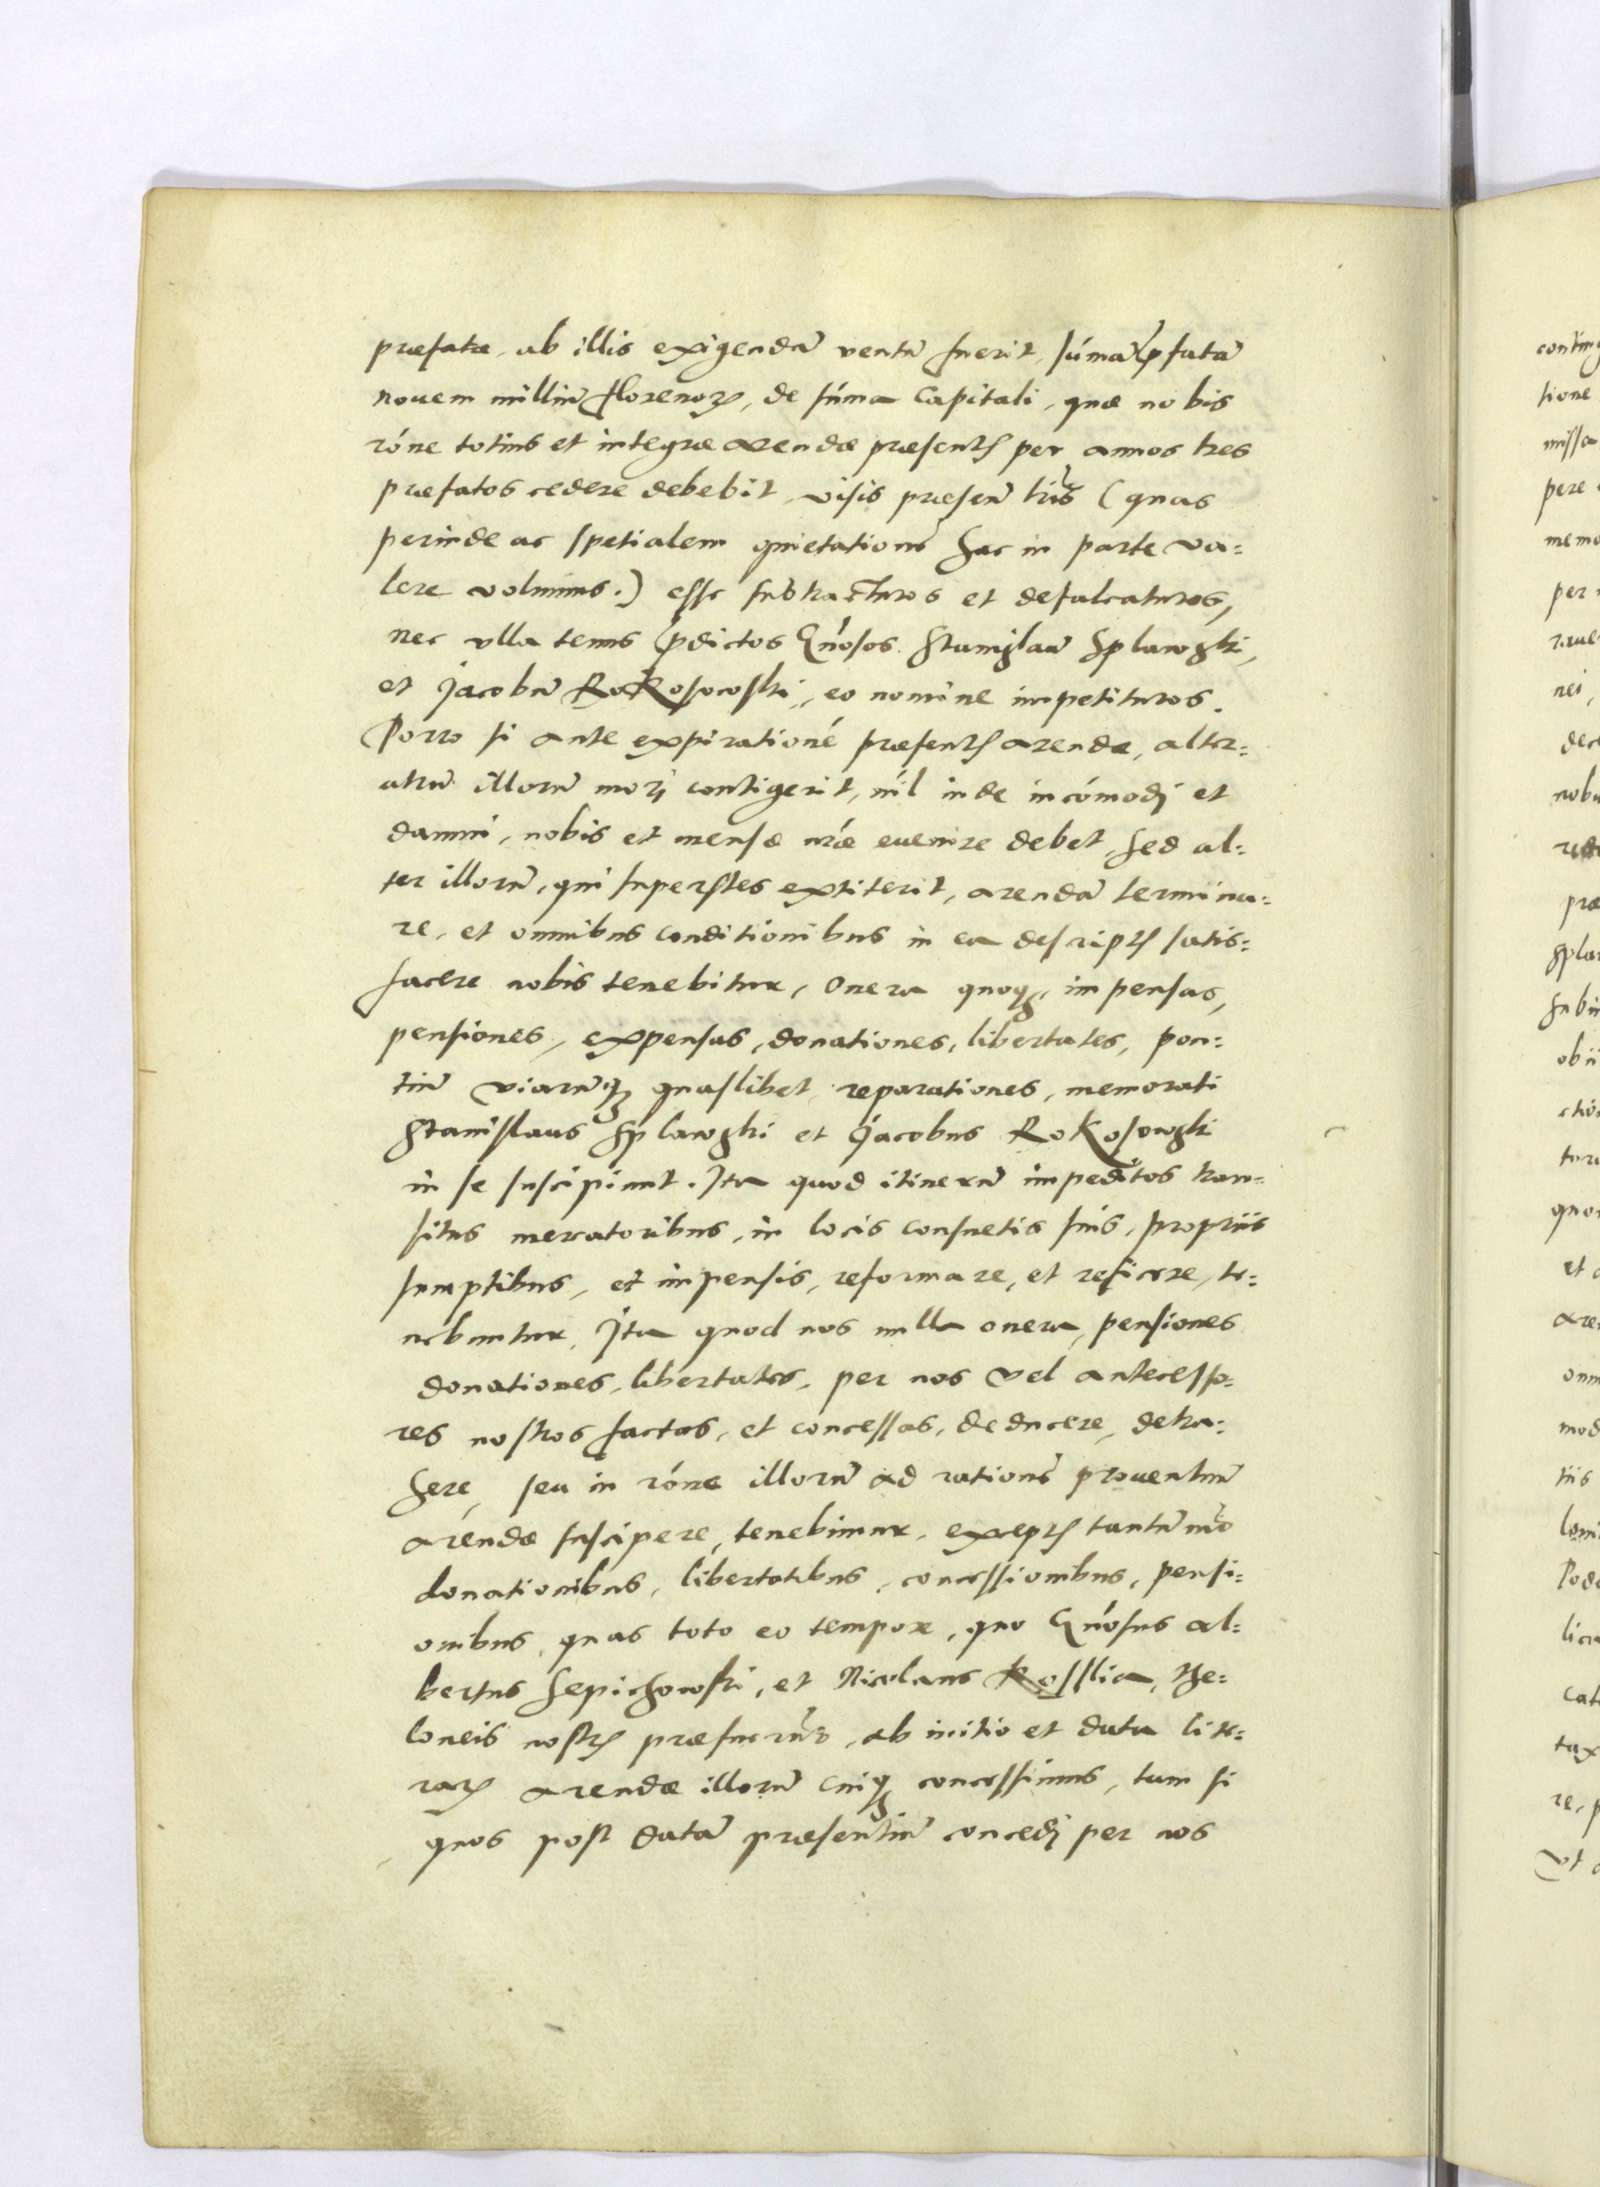 præfatæ, ab illis exigendā ventū fuerit, sūmā p̄fatā
nouem milliū florenoꝝ, de sūma Capitali, quæ nobis
rōne totius et integræ arendæ præsentꝭ per annos tres
præfatos cedere debebit, visis præsen̄ lris̄ (quas
perinde ac spetialem quietationē hac in parte va=
lere volumus.) esse subtracturos et defalcaturos,
nec vlla tenus p̄dictos Gn̄osos Stanislaū Splawski,
et Jacobū Rokosowski, eo nomine impetituros.
Porro si ante expirationē præsentꝭ arendæ, alter=
utrū illorū mori contigerit, nil inde incōmodi et
damni, nobis et mensæ nr̄æ euenire debet, sed al=
ter illorū, qui superstes extiterit, arendā termina=
re, et omnibus conditionibus in ea descriptꝭ satis=
facere nobis tenebitur, Onera quoqꝫ, impensas,
pensiones, expensas, donationes, libertates, pon=
tiū viarūqꝫ quaslibet reparationes, memorati
Stanislaus Splawski et Jacobus Rokosowski
in se suscipiunt. Ita quod itinerū impeditos tran=
situs mercatoribus, in locis consuetis suis, propriis
sumptibus, et impensis, reformare, et reficere, te=
nebuntur, Ita quod nos nulla onera, pensiones
donationes, libertates, per nos vel antecesso=
res nostros factas, et concessas, deducere, detra=
here, seu in rōne illorū ad rationē prouentuū
arendæ suscipere, tenebimur, exceptꝭ tantūmō
donationibus, libertatibus, concessionibus, pensi=
onibus, quas toto eo tempore, quo Gn̄osus Al=
bertus Sepichowski, et Nicolaus Kosslia, the=
loneis nostrꝭ præfuerūt, ab initio et data lite=
raꝝ arendæ illorū cuiqꝫ concessimus, tum si
quos post datā præsentiū concedi per nos